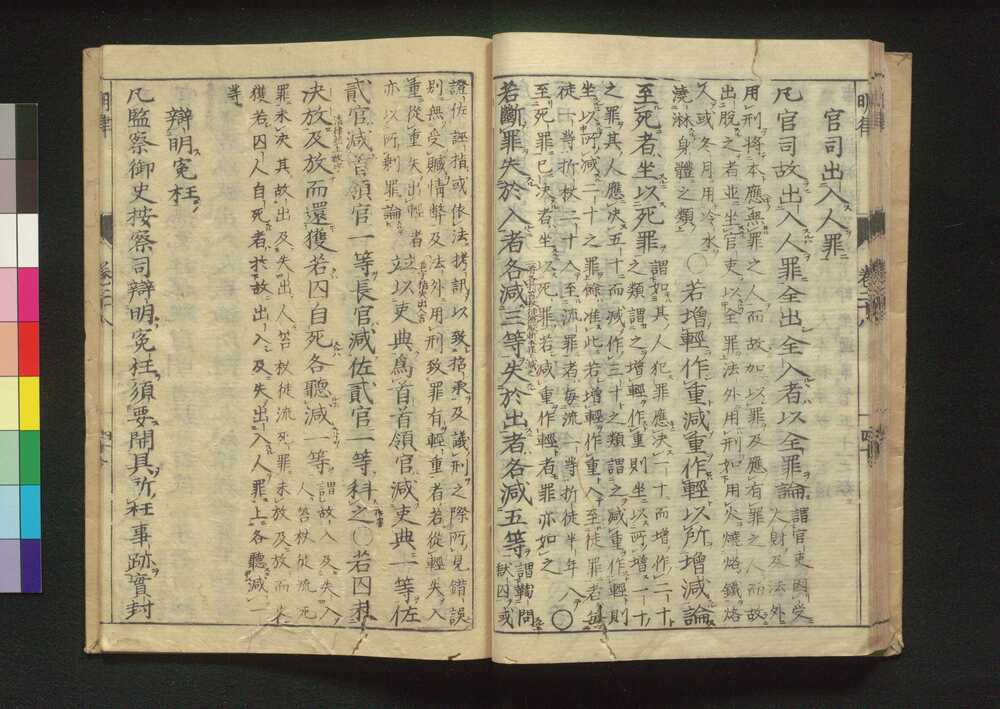 官司出入人罪
凡官司故出入人罪全出全入者以全罪論謂官吏因受
人財及法外
用刑將本應無罪之人而故加以罪及應有罪之人而故
出脫之者並坐官吏以全罪法外用刑如用火燒烙鐵烙
人或冬月用冷水
澆淋身體之類〇若增輕作重減重作輕以所增減論
至死者坐以死罪謂如其人犯罪應決一十而增作二十
之類謂之增輕作重則坐以所增一十
之罪其人應決五十而減作三十之類謂之減重作輕則
坐以所減二十之罪餘准此若增輕作重入至徒罪者每
徒一等折杖二十入至流罪者每流一等折徒半年入
至死罪已決者坐以死罪若減重作輕者罪亦如之〇
若斷罪失於入者各減三等失於出者各減五等謂鞫問
獄囚或
證佐誣指或依法拷訊以致招承及議刑之際所見錯誤
別無受贓情弊及法外用刑致罪有輕重者若從輕失入
重從重失出輕者
亦以所剩罪論並以吏典為首首領官減吏典一等佐
貳官減首領官一等長官減佐貳官一等科之〇若囚未
決放及放而還獲若囚自死各聽減一等謂故入及失入
人笞杖徒流死
罪未決其故出及失出人笞杖徒流死罪未放及放而
獲若囚人自死者於故出入及失出入人罪上各聽減一
等
辯明冤枉
凡監察御史按察司辯明冤枉須要開具所枉事跡實封
明律
卷二十八